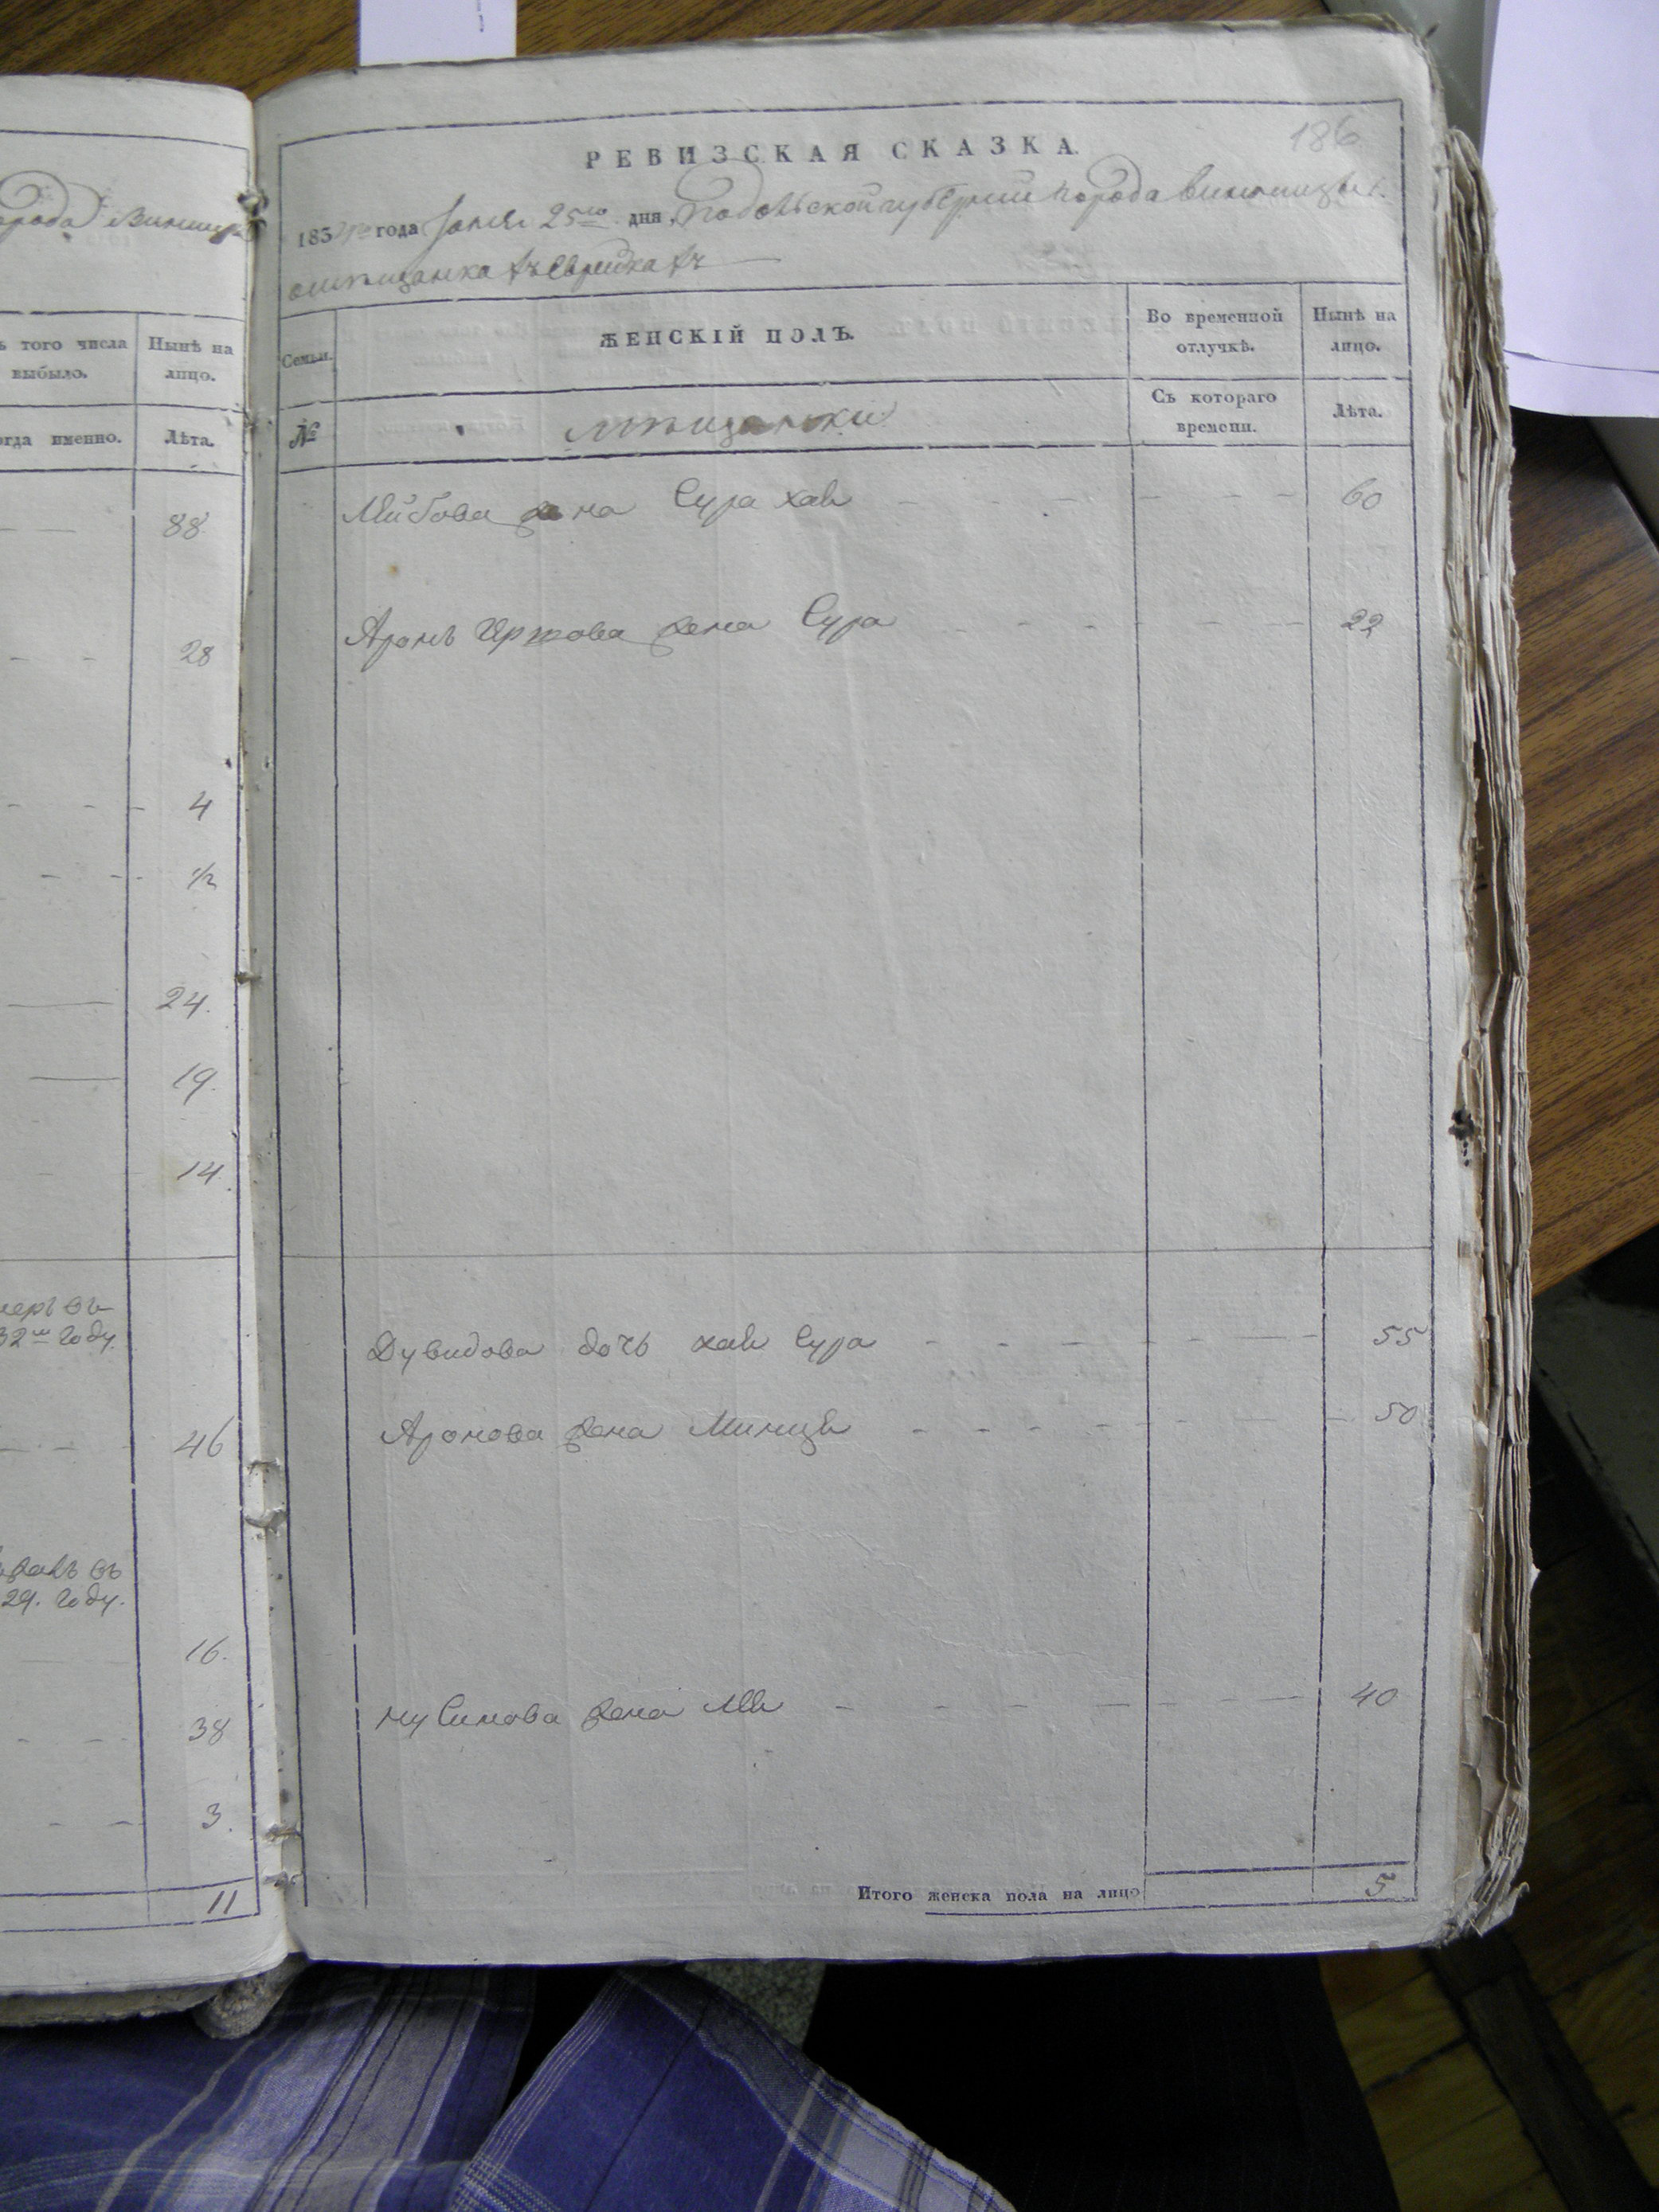 орода Винниц
ъ того числа
выбыло.
Нынѣ на
лицо.
огда именно.
Лѣта.
88
28
4
1/2
24.
19.
14.
меръ въ
32 году.
46
въ
29. году.
16.
38
3.
11
186
РЕВИЗСКАЯ СКАЗКА.
183 года 25го дня, Подольской губерніи города Винницы
мѣщанкахъ еврейкахъ
Семьи.
ЖЕНСКІЙ ПОЛЪ.
Во временной
отлучкѣ.
Нынѣ на
лицо.
№
мѣщанки
Съ котораго
времени.
Лѣта.
Лейбова жена Сура хая 60
Аронъ жена Сура 22
Дувидова дочь хая Сура 55
Аронова жена 50
нусимова жена 40
Итого женска пола на лицо 5